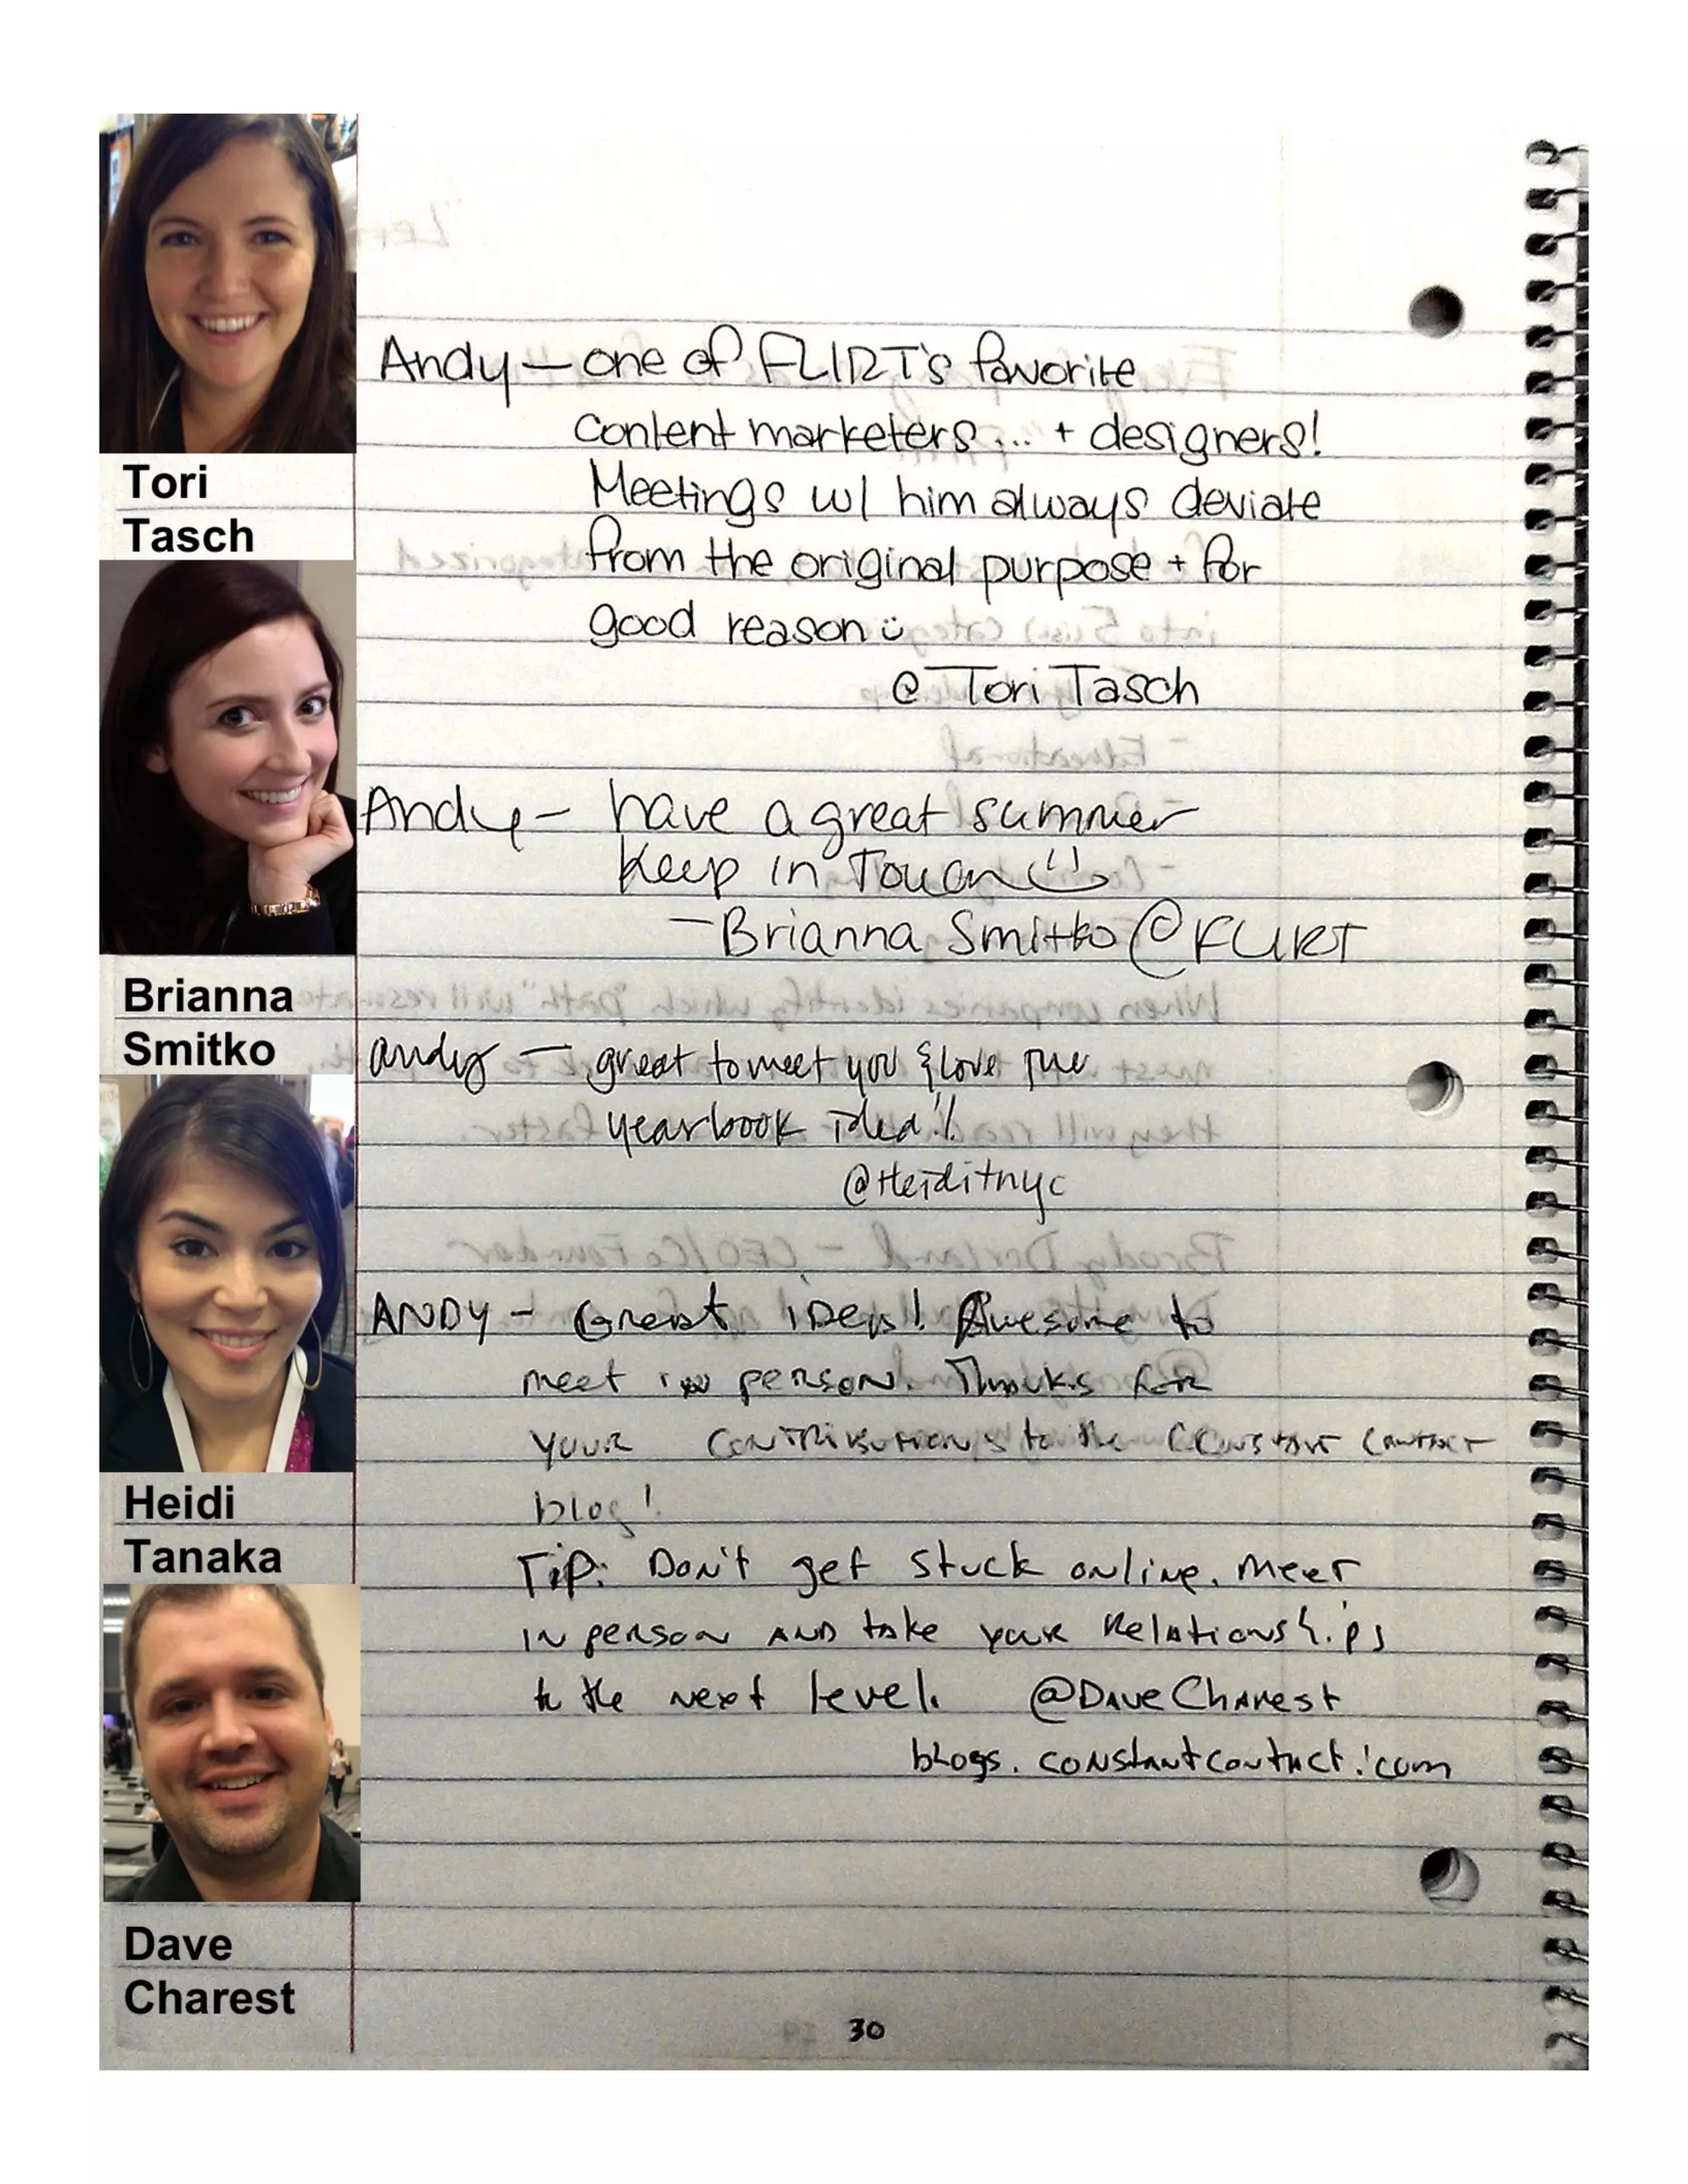 Tori
Tasch
Andy — one of FLIRT's favorite
content marketers ... + designers!
Meetings w/ him always deviate
from the original purpose + for
good reason
@ToriTasch
Brianna
Smitko
Andy - have a great summer
Keep in Touch
- Brianna Smitko @FLIRT
Heidi
Tanaka
andy — great to meet you & love the
yearbook idea!
@Heiditnyc
Dave
Charest
ANDY - Great idea! Awesome to
meet in person. Thanks for
your contributions to the Constant Contact
blog!
Tip: Don't get stuck online. Meet
in person AND take your Relationships
to the next level. @DaveCharest
blogs.constantcontact.com
30